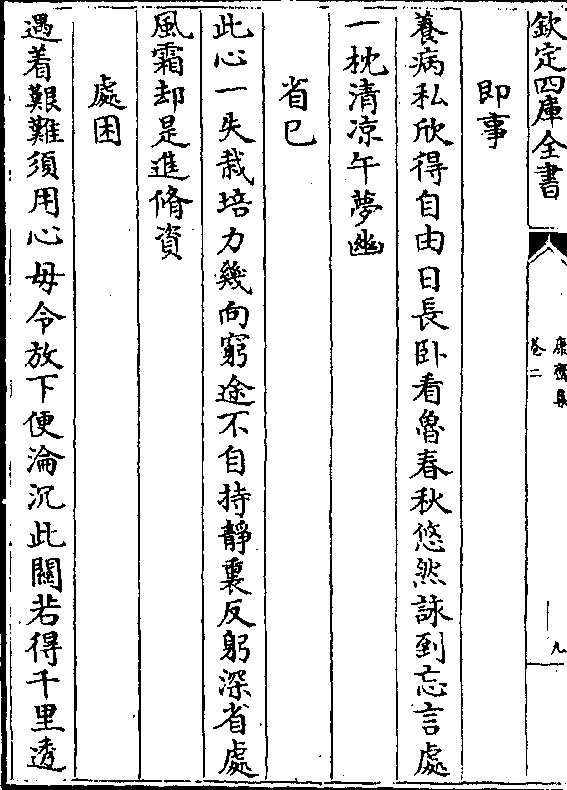 欽定四庫全書
康齋集
卷二
九
即事
養病私欣得自由日長卧看魯春秋悠然詠到忘言處
一枕清凉午夢幽
省已
此心一失栽培力幾向窮途不自持靜裏反躬深省處
風霜却是進脩資
處困
遇着艱難須用心毋令放下便淪沉此關若得千里透